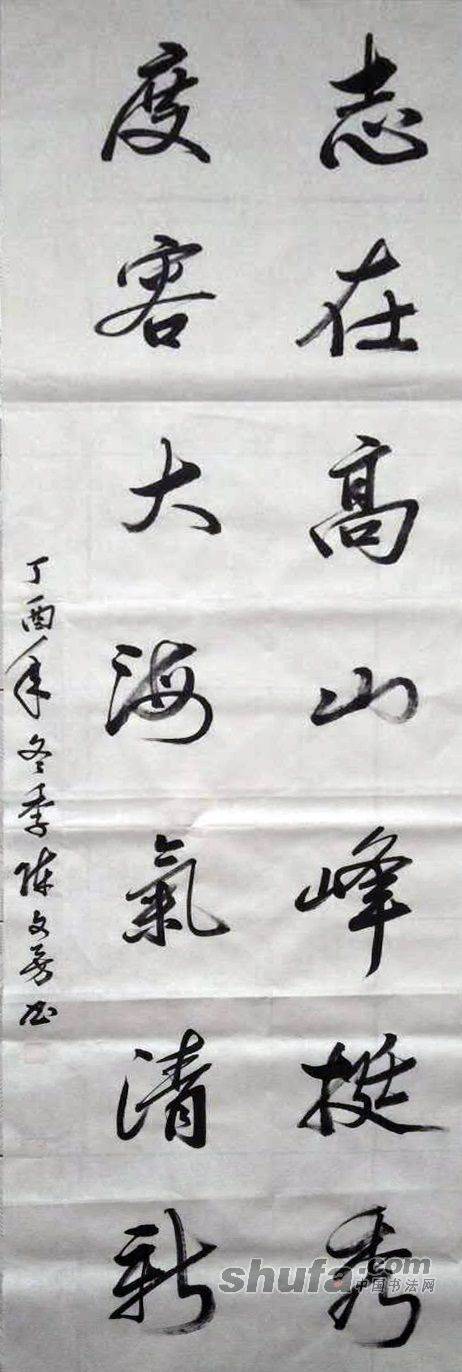 志在高山峰挺秀
度容大海氣清新
丁酉年冬季陈文芳书
shufa.com
中国书法网